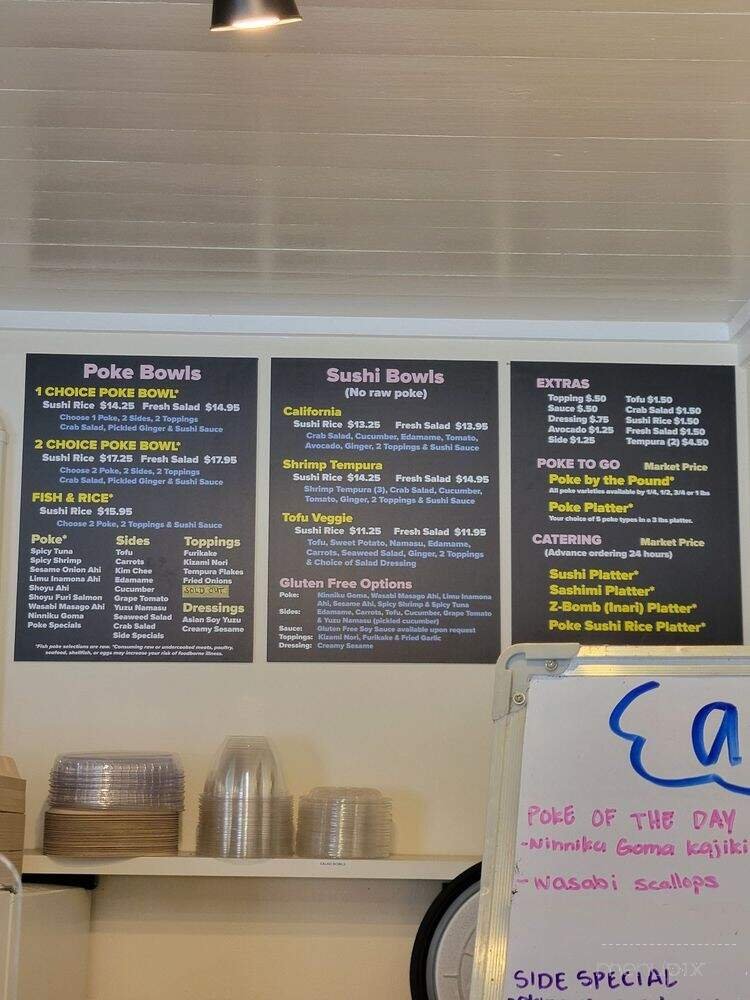 Poke Bowls
1 CHOICE POKE BOWL*
Sushi Rice $14.25 Fresh Salad $14.95
Choose 1 Poke, 2 Sides, 2 Toppings
Crab Salad, Pickled Ginger & Sushi Sauce
2 CHOICE POKE BOWL*
Sushi Rice $17.25 Fresh Salad $17.95
Choose 2 Poke, 2 Sides, 2 Toppings
Crab Salad, Pickled Ginger & Sushi Sauce
FISH & RICE*
Sushi Rice $15.95
Choose 2 Poke, 2 Toppings & Sushi Sauce
Poke*
Spicy Tuna
Spicy Shrimp
Sesame Onion Ahi
Limu Inamona Ahi
Shoyu Ahi
Shoyu Furi Salmon
Wasabi Masago Ahi
Ninniku Goma
Poke Specials
Sides
Tofu
Carrots
Kim Chee
Edamame
Cucumber
Grape Tomato
Yuzu Namasu
Seaweed Salad
Crab Salad
Side Specials
Toppings
Furikake
Kizami Nori
Tempura Flakes
Fried Onions
SOLD OUT
Dressings
Asian Soy Yuzu
Creamy Sesame
*Fish poke selections are raw. *Consuming raw or undercooked meats, poultry,
seafood, shellfish, or eggs may increase your risk of foodborne illness.
Sushi Bowls
(No raw poke)
California
Sushi Rice $13.25 Fresh Salad $13.95
Crab Salad, Cucumber, Edamame, Tomato,
Avocado, Ginger, 2 Toppings & Sushi Sauce
Shrimp Tempura
Sushi Rice $14.25 Fresh Salad $14.95
Shrimp Tempura (3), Crab Salad, Cucumber,
Tomato, Ginger, 2 Toppings & Sushi Sauce
Tofu Veggie
Sushi Rice $11.25 Fresh Salad $11.95
Tofu, Sweet Potato, Namasu, Edamame,
Carrots, Seaweed Salad, Ginger, 2 Toppings
& Choice of Salad Dressing
Gluten Free Options
Poke: Ninniku Goma, Wasabi Masago Ahi, Limu Inamona
Ahi, Sesame Ahi, Spicy Shrimp & Spicy Tuna
Sides: Edamame, Carrots, Tofu, Cucumber, Grape Tomato
& Yuzu Namasu (pickled cucumber)
Sauce: Gluten Free Soy Sauce available upon request
Toppings: Kizami Nori, Furikake & Fried Garlic
Dressing: Creamy Sesame
EXTRAS
Topping $.50 Tofu $1.50
Sauce $.50 Crab Salad $1.50
Dressing $.75 Sushi Rice $1.50
Avocado $1.25 Fresh Salad $1.50
Side $1.25 Tempura (2) $4.50
POKE TO GO Market Price
Poke by the Pound*
All poke varieties available by 1/4, 1/2, 3/4 or 1 lbs
Poke Platter*
Your choice of 5 poke types in a 3 lbs platter.
CATERING Market Price
(Advance ordering 24 hours)
Sushi Platter*
Sashimi Platter*
Z-Bomb (Inari) Platter*
Poke Sushi Rice Platter*
SALAD BOWLS
POKE OF THE DAY
-Ninniku Goma Kajiki
-wasabi scallops
SIDE SPECIAL